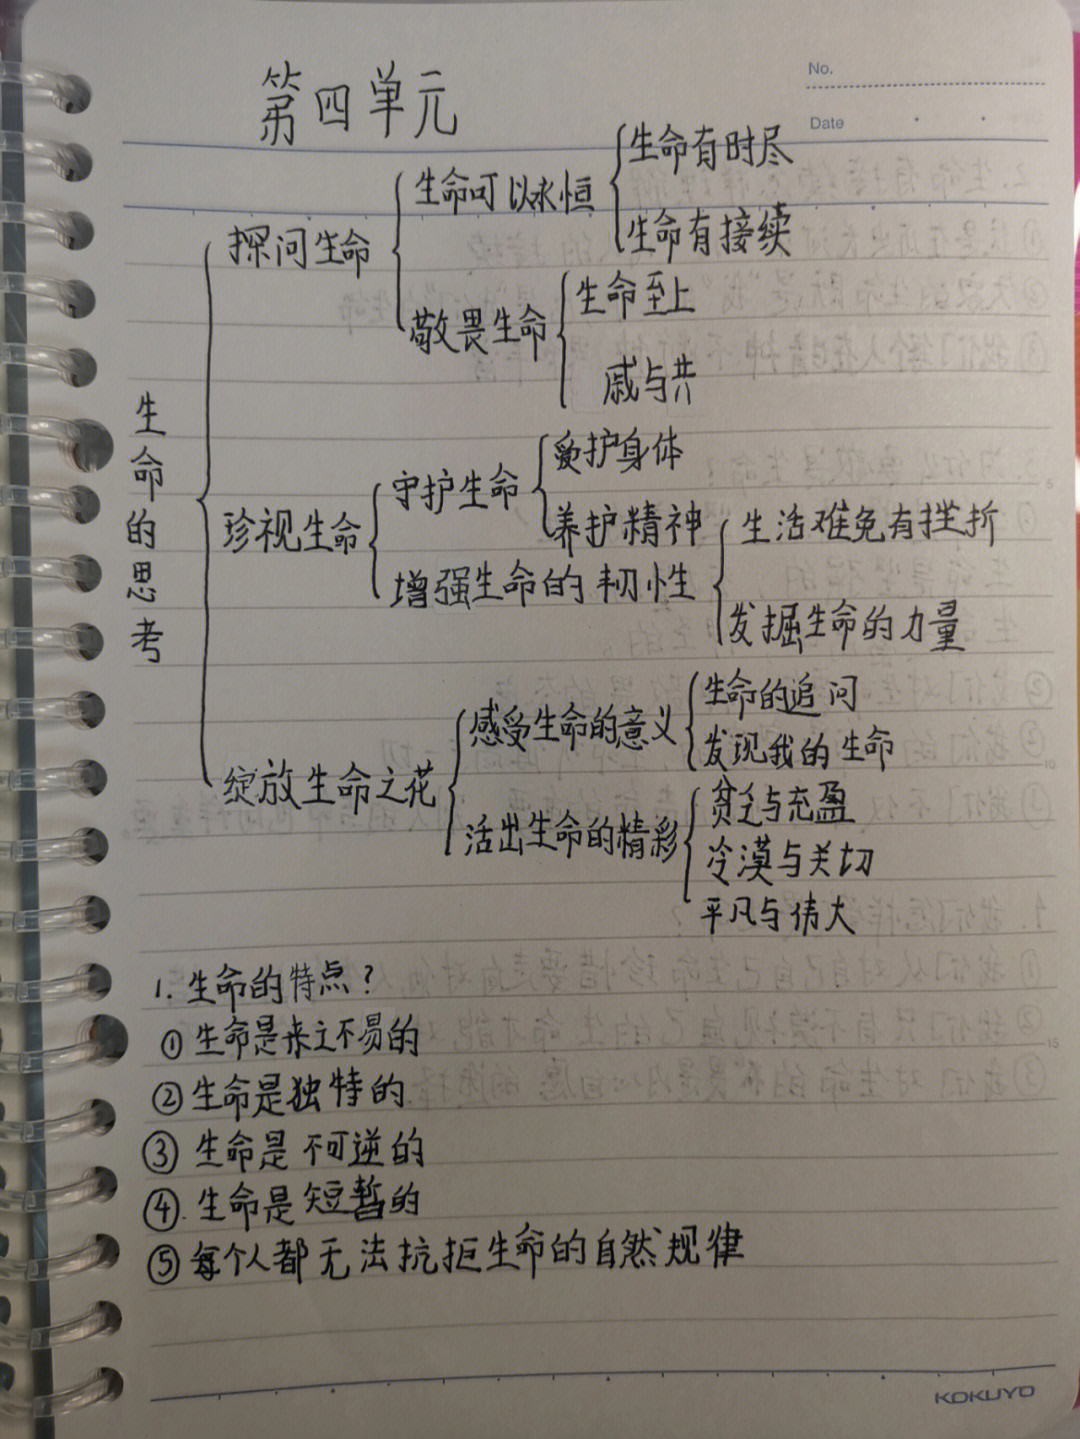 No.
Date
第四单元
生命的思考
探问生命
生命可以永恒
生命有时尽
生命有接续
敬畏生命
生命至上
戚与共
珍视生命
守护生命
爱护身体
养护精神
增强生命的韧性
生活难免有挫折
发掘生命的力量
绽放生命之花
感受生命的意义
生命的追问
发现我的生命
活出生命的精彩
贫乏与充盈
冷漠与关切
平凡与伟大
1. 生命的特点?
① 生命是来之不易的
② 生命是独特的
③ 生命是不可逆的
④. 生命是短暂的
⑤ 每个人都无法抗拒生命的自然规律
KOKUYO